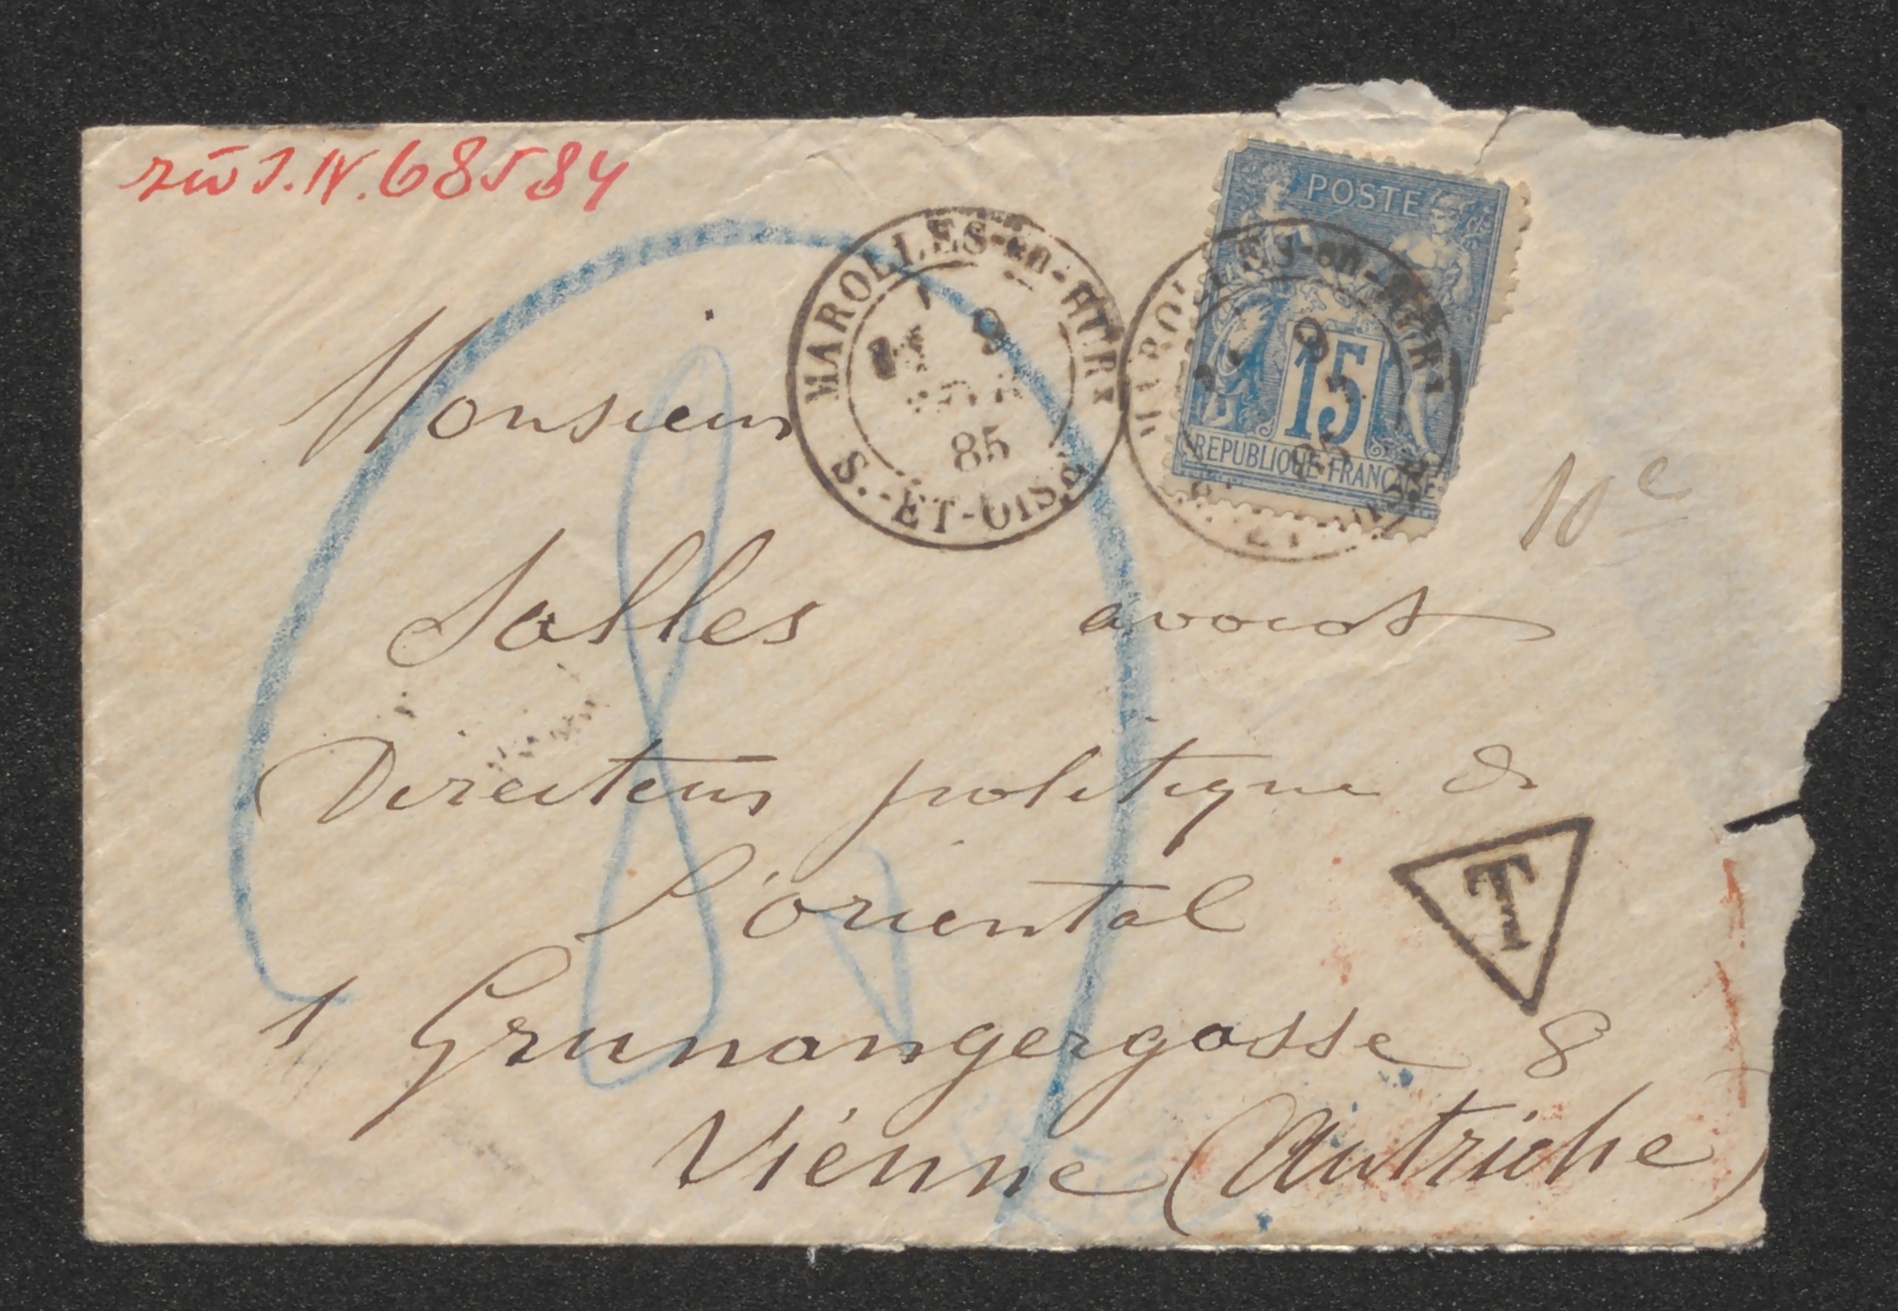 zu I.N. 68584
MAROLLES-en-HUR
9
85
S.-ET-OISE
POSTE
15
REPUBLIQUE FRANÇAISE
10 c
Monsieur
Salles avocat
Directeur politique de
l'oriental
T
1 Grunangergasse 8
Vienne (Autriche)